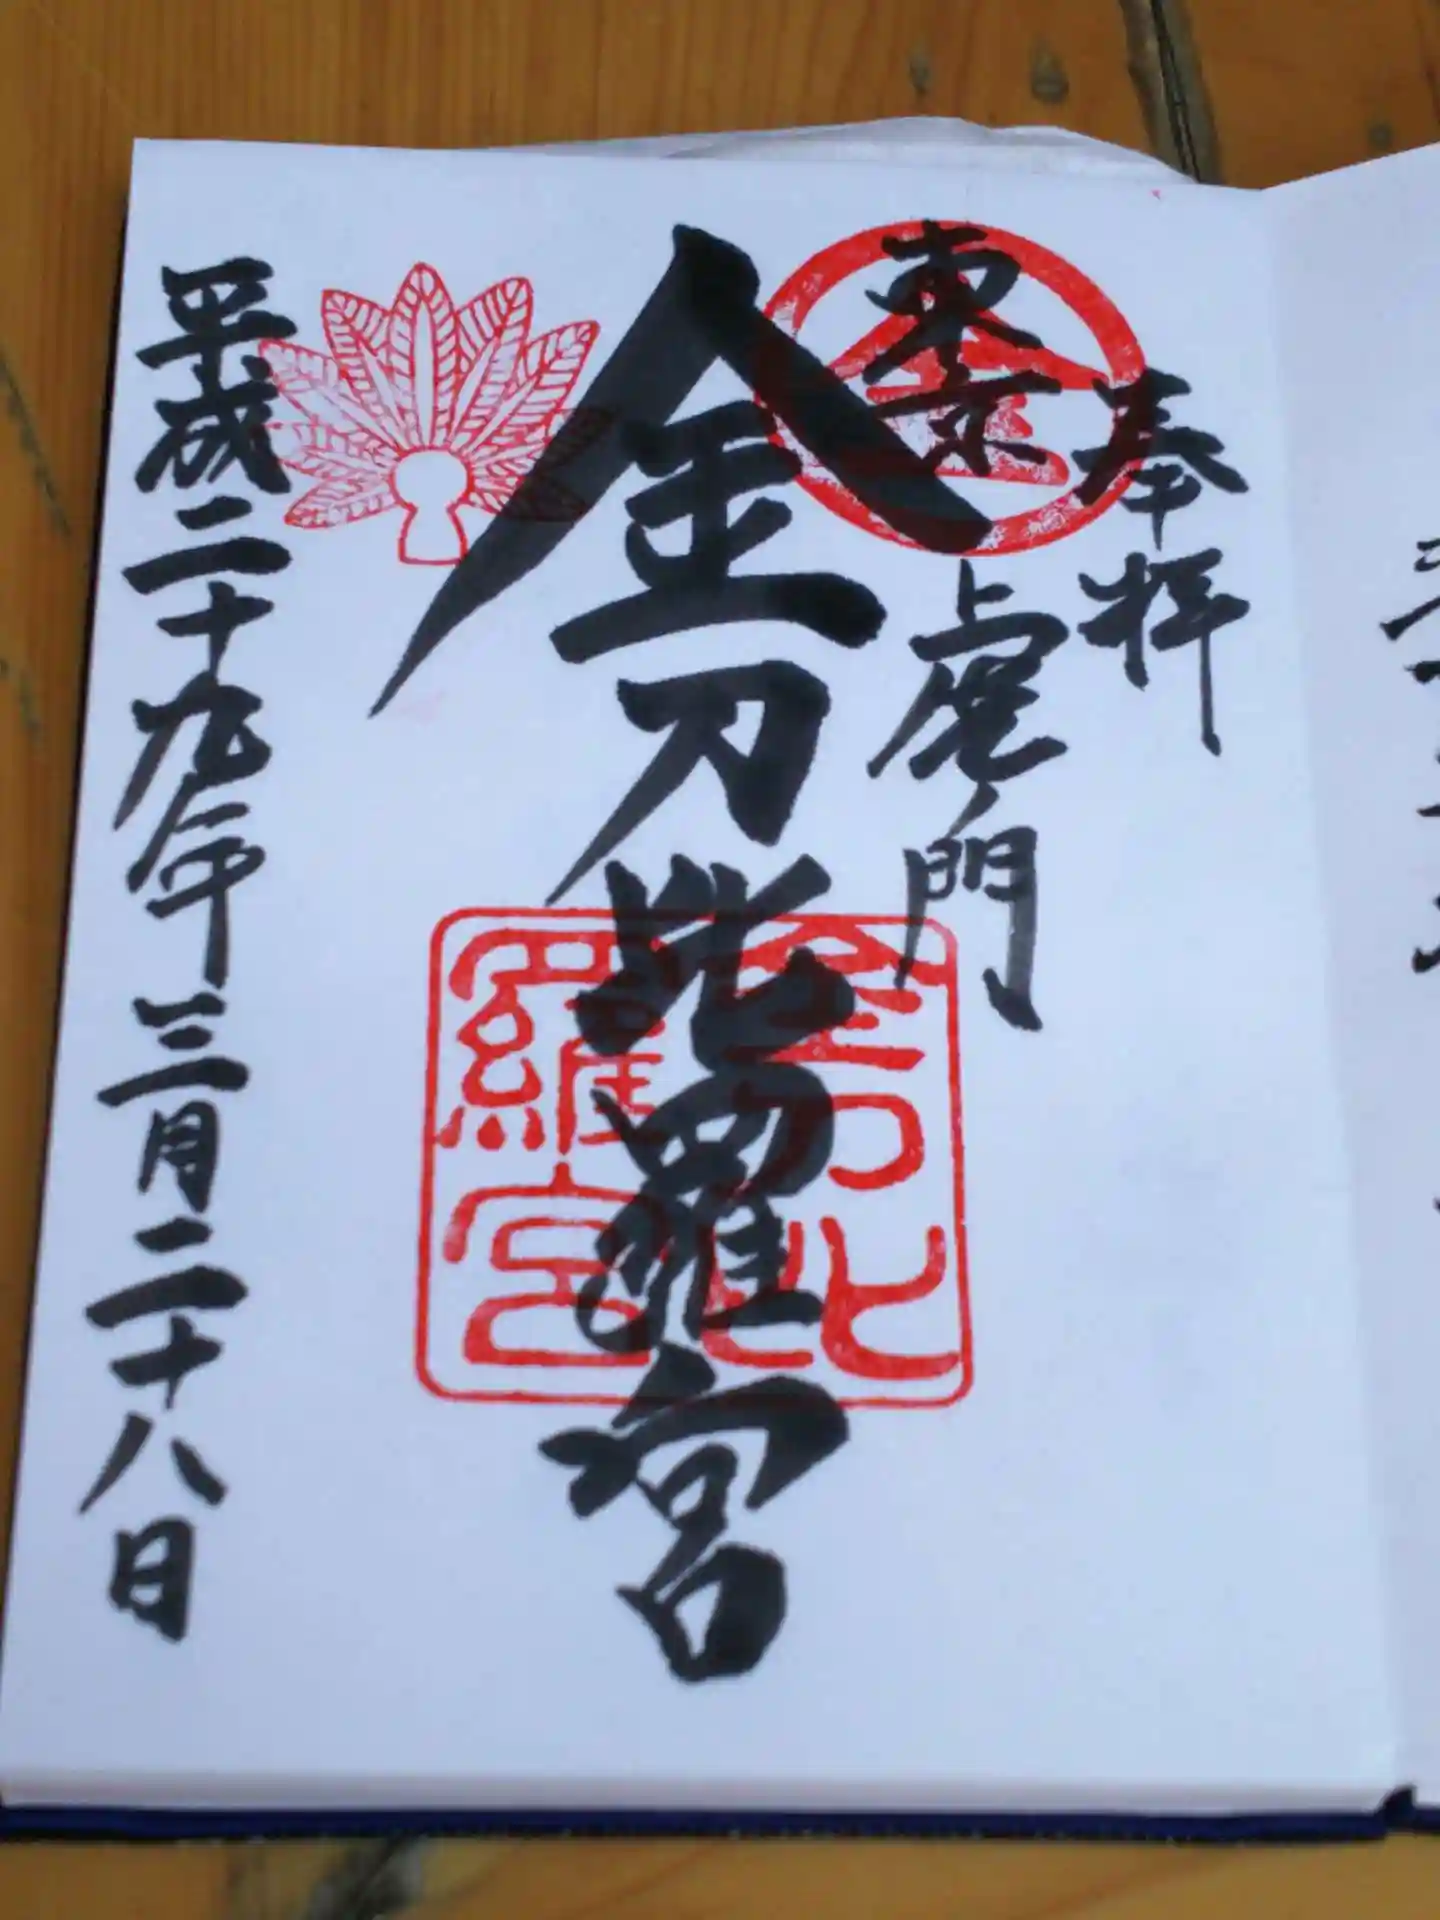 奉拝
東京
虎ノ門
金刀比羅宮
金刀比羅宮
平成二十九年三月二十八日